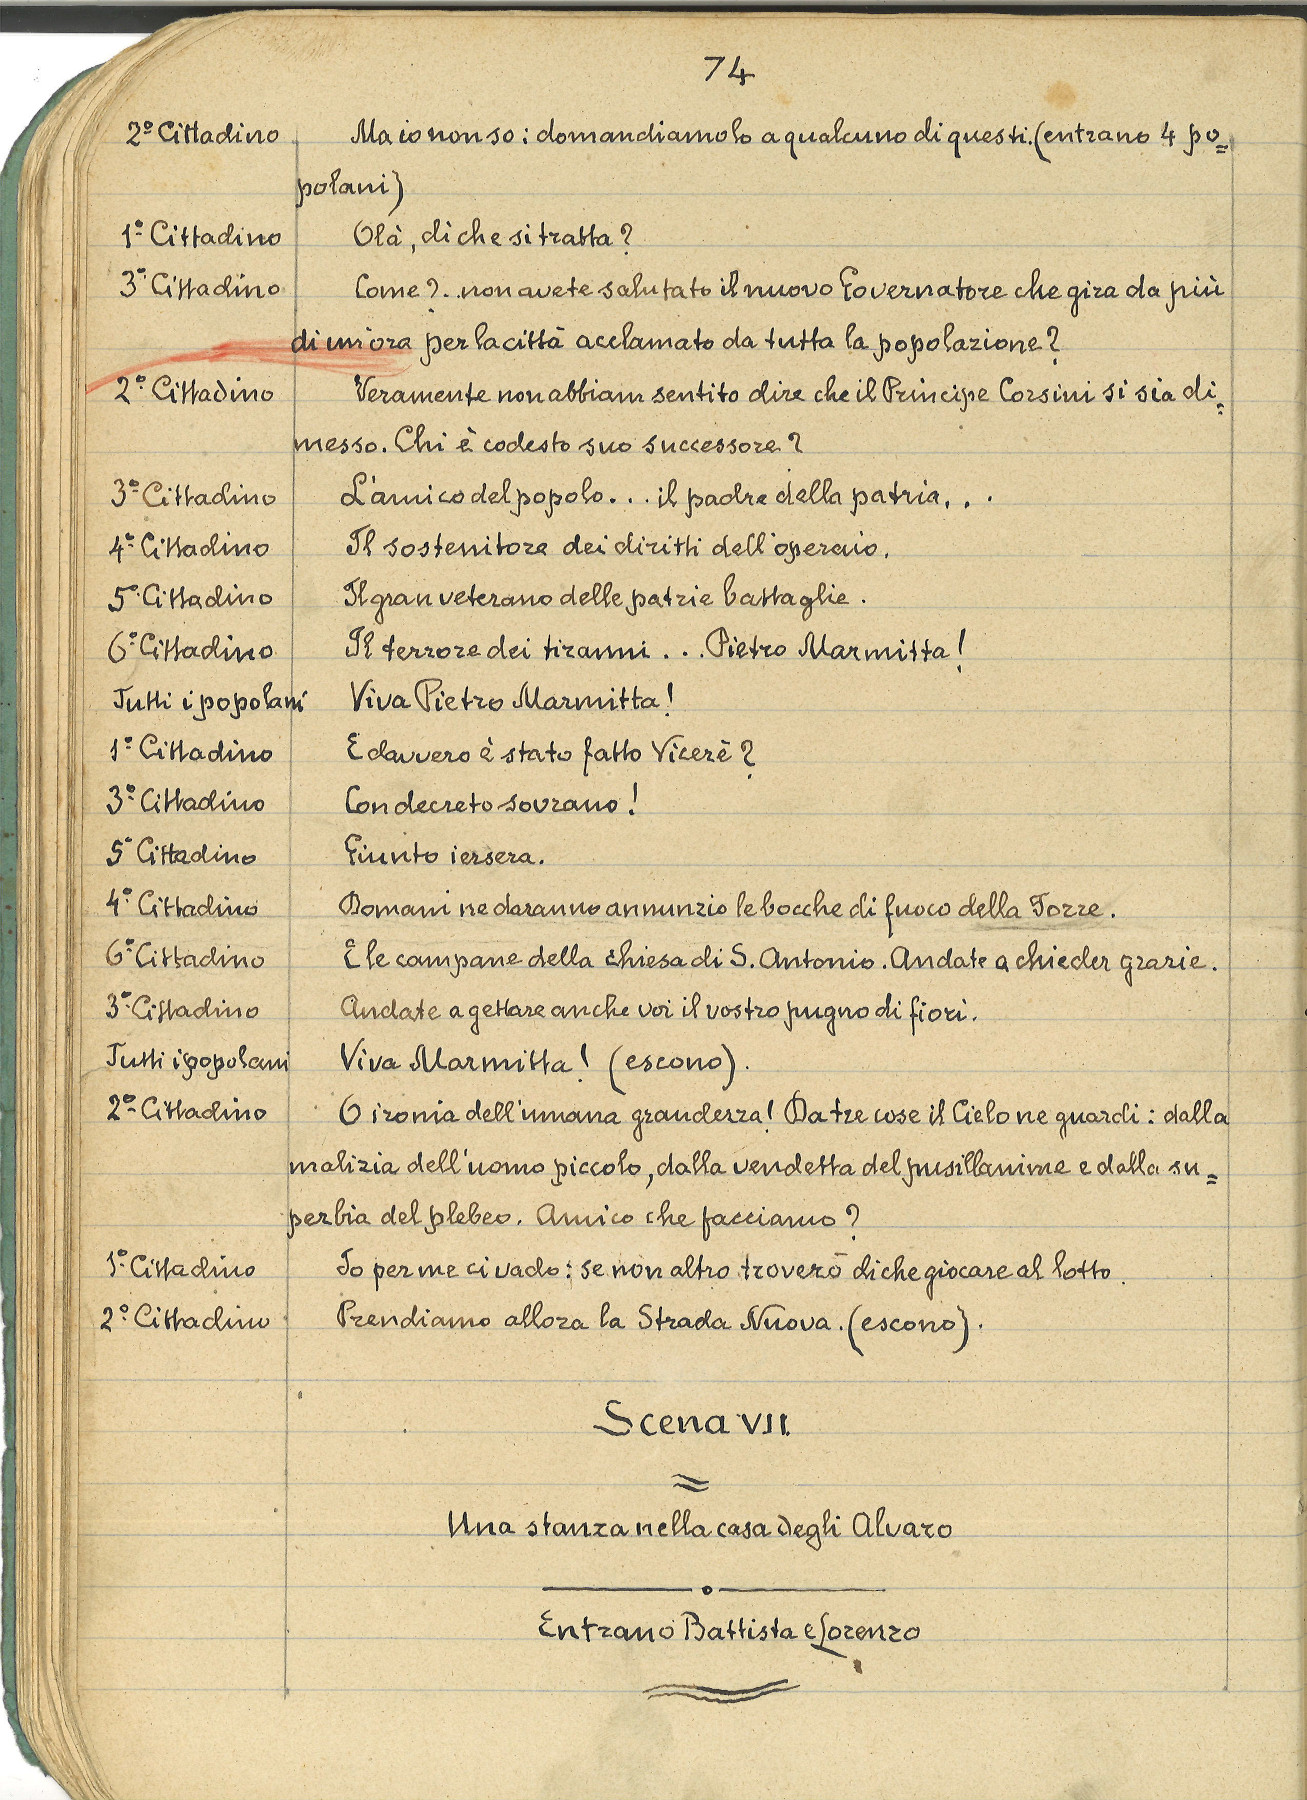 74
2º Cittadino Ma io non so: domandiamolo a qualcuno di questi. (entrano 4 po=
polani)
1º Cittadino Olà, di che si tratta?
3º Cittadino Come?.. non avete salutato il nuovo Governatore che gira da più
di un'ora per la città acclamato da tutta la popolazione?
2º Cittadino Veramente non abbiam sentito dire che il Principe Corsini si sia di=
messo. Chi è codesto suo successore?
3º Cittadino L'amico del popolo... il padre della patria...
4º Cittadino Il sostenitore dei diritti dell'operaio.
5º Cittadino Il gran veterano delle patrie battaglie.
6º Cittadino Il terrore dei tiranni... Pietro Marmitta!
Tutti i popolani Viva Pietro Marmitta!
1º Cittadino E davvero è stato fatto Vicerè?
3º Cittadino Con decreto sovrano!
5º Cittadino Giunto iersera.
4º Cittadino Domani ne daranno annunzio le bocche di fuoco della Torre.
6º Cittadino E le campane della chiesa di S. Antonio. Andate a chieder grazie.
3º Cittadino Andate a gettare anche voi il vostro pugno di fiori.
Tutti i popolani Viva Marmitta! (escono).
2º Cittadino O ironia dell'umana grandezza! Da tre cose il Cielo ne guardi: dalla
malizia dell'uomo piccolo, dalla vendetta del pusillanime e dalla su=
perbia del plebeo. Amico che facciamo?
1º Cittadino Io per me ci vado: se non altro troverò di che giocare al lotto.
2º Cittadino Prendiamo allora la Strada Nuova. (escono).
Scena VII.
Una stanza nella casa degli Alvaro
Entrano Battista e Lorenzo